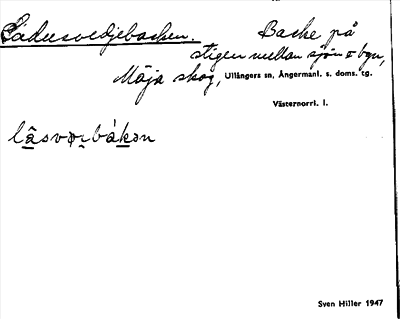 Ladusvedjebacken. Backe på
stigen mellan sjön o byn,
Mäja skog, Ullångers sn, Ångermanl. s. doms. tg.
Västernorrl. l.
Sven Hiller 1947